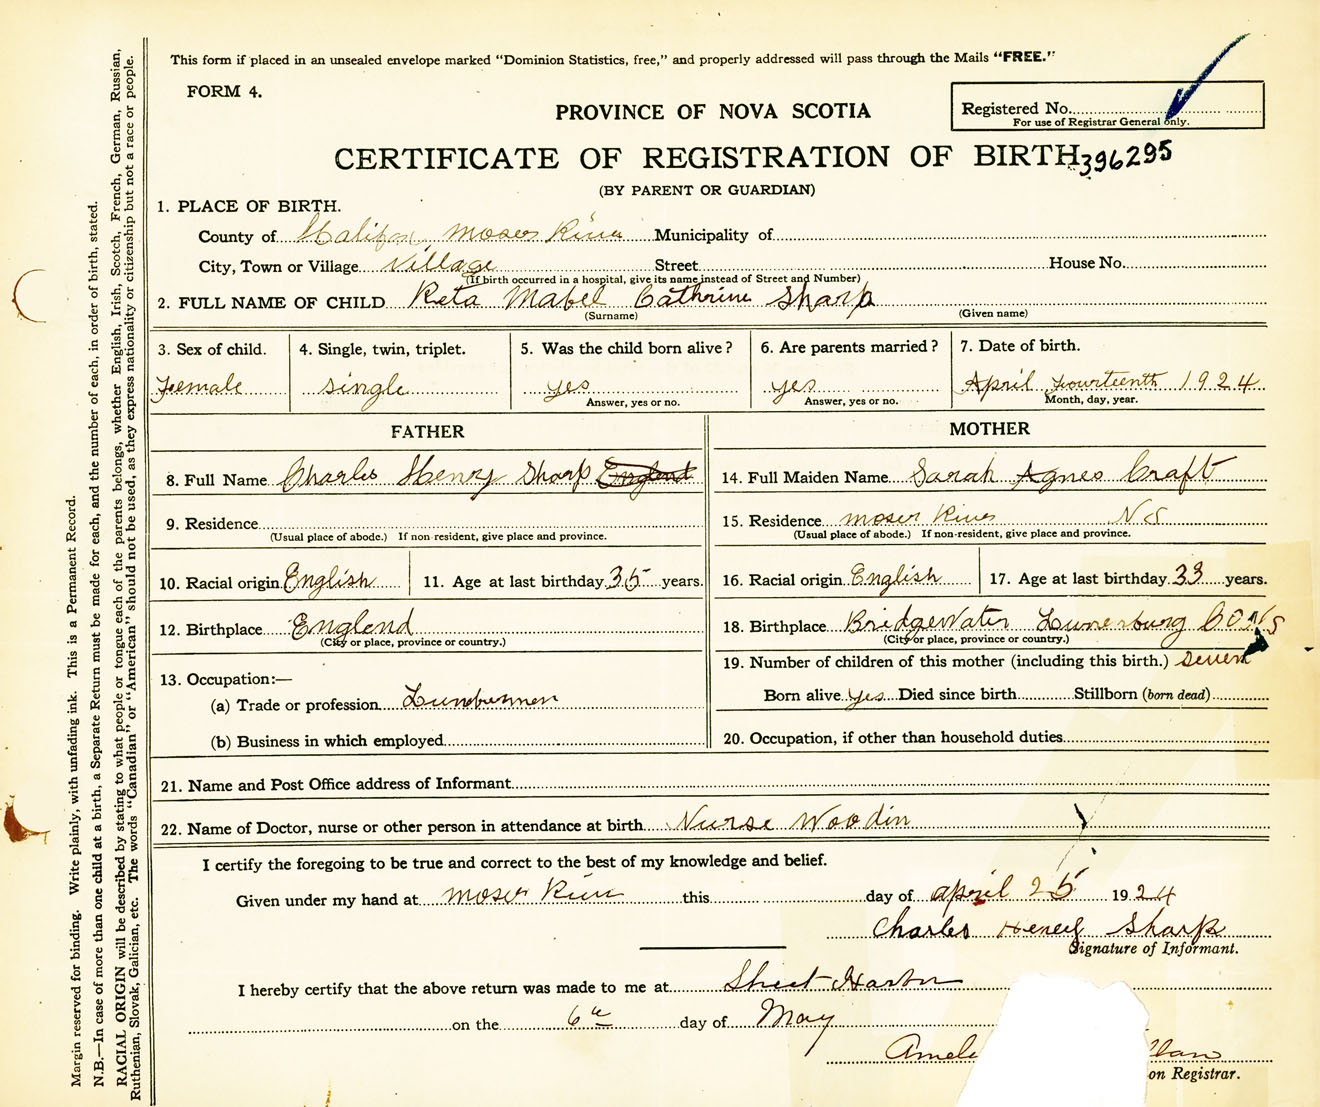 This form if placed in an unsealed envelope marked "Dominion Statistics, free," and properly addressed will pass through the Mails "FREE."
FORM 4.
PROVINCE OF NOVA SCOTIA
Registered No.
For use of Registrar General only.
CERTIFICATE OF REGISTRATION OF BIRTH 396295
(BY PARENT OR GUARDIAN)
1. PLACE OF BIRTH.
County of Halifax Moser River Municipality of
City, Town or Village Village Street House No.
(If birth occurred in a hospital, give its name instead of Street and Number)
2. FULL NAME OF CHILD Reta Mabel Cathrine Sharp
(Surname) (Given name)
3. Sex of child. 4. Single, twin, triplet. 5. Was the child born alive? 6. Are parents married? 7. Date of birth.
Female single yes yes April fourteenth 1924
Answer, yes or no. Answer, yes or no. Month, day, year.
FATHER MOTHER
8. Full Name Charles Henry Sharp England 14. Full Maiden Name Sarah Agnes Craft
9. Residence 15. Residence Moser River N S
(Usual place of abode.) If non-resident, give place and province. (Usual place of abode.) If non-resident, give place and province.
10. Racial origin English 11. Age at last birthday 35 years. 16. Racial origin English 17. Age at last birthday 33 years.
12. Birthplace Englend 18. Birthplace BridgeWater Lunenburg Co NS
(City or place, province or country.) (City or place, province or country.)
19. Number of children of this mother (including this birth.) seven
13. Occupation:—
(a) Trade or profession Lumbermen Born alive yes Died since birth Stillborn (born dead)
(b) Business in which employed 20. Occupation, if other than household duties
21. Name and Post Office address of Informant
22. Name of Doctor, nurse or other person in attendance at birth Nurse Woodin
I certify the foregoing to be true and correct to the best of my knowledge and belief.
Given under my hand at Moser River this day of april 25 1924
Charles Henery Sharp
Signature of Informant.
I hereby certify that the above return was made to me at Sheet Harbor
on the 6th day of May
Amel llan
on Registrar.
Margin reserved for binding. Write plainly, with unfading ink. This is a Permanent Record.
N.B.—In case of more than one child at a birth, a Separate Return must be made for each, and the number of each, in order of birth, stated.
RACIAL ORIGIN will be described by stating to what people or tongue each of the parents belongs, whether English, Irish, Scotch, French, German, Russian,
Ruthenian, Slovak, Galician, etc. The words "Canadian" or "American" should not be used, as they express nationality or citizenship but not a race or people.